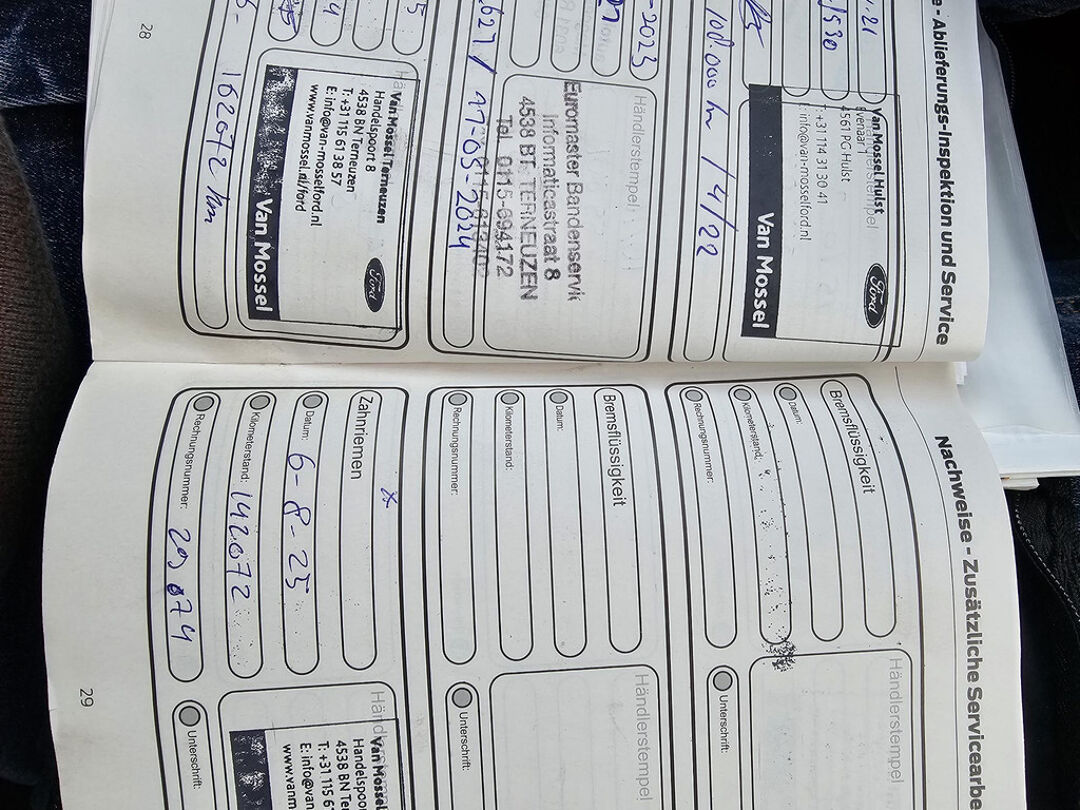 - Ablieferungs-Inspektion und Service
Händlerstempel
Van Mossel Hulst
4561 PG Hulst
+31 114 31 30 41
info@van-mosselford.nl
Ford
Van Mossel
100.000 km / 4/22
-2023
Händlerstempel
Euromaster Bandenservic
Informaticastraat 8
4538 BT TERNEUZEN
Tel. 0115-694172
627 / 17-05-2024
Van Mossel Terneuzen
Handelspoort 8
4538 BN Terneuzen
T: +31 115 61 38 57
E: info@van-mosselford.nl
www.vanmossel.nl/ford
Ford
Van Mossel
162072 km
28
Nachweise - Zusätzliche Servicearbe
Bremsflüssigkeit
Datum:
Kilometerstand:
Rechnungsnummer:
Händlerstempel
Unterschrift:
Bremsflüssigkeit
Datum:
Kilometerstand:
Rechnungsnummer:
Händlerstempel
Unterschrift:
Zahnriemen
Datum: 6-8-25
Kilometerstand: 142072
Rechnungsnummer:
Van Mosse
Handelspoor
4538 BN Ter
T: +31 115 61
E: info@van
www.vanm
Van Mos
Unterschrift:
29